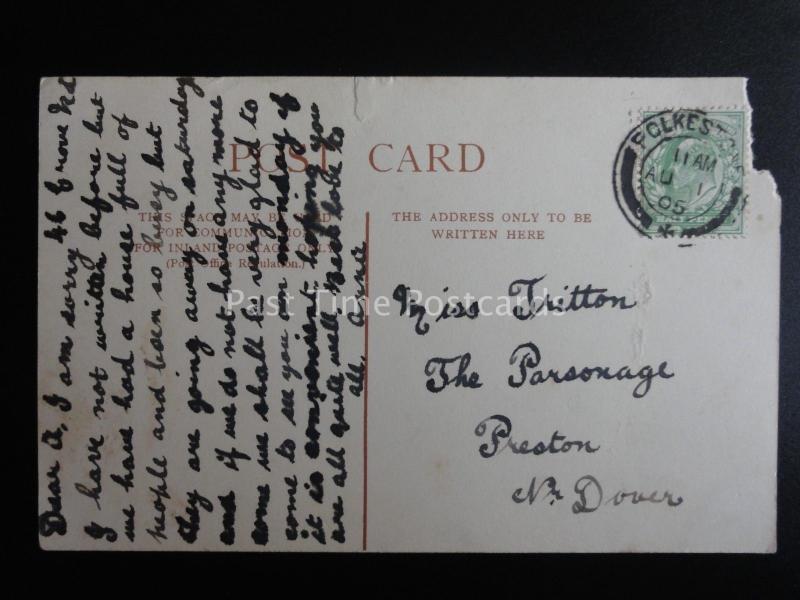 POST CARD
THIS SPACE MAY BE USED
FOR COMMUNICATION
FOR INLAND POSTAGE ONLY
(Post Office Regulation.)
THE ADDRESS ONLY TO BE
WRITTEN HERE
FOLKESTONE
11 AM
AU 1
05
46 Grove Rd
Dear A, I am sorry
I have not written before but
we have had a house full of
people and been so busy but
they are going away on saturday
and if we do not have any more
come we shall be very glad to
come to see you on monday if
it is convenient hoping you
are all quite well with love to
all, Annie
Miss Tritton
The Parsonage
Preston
Nr Dover
Past Time Postcards